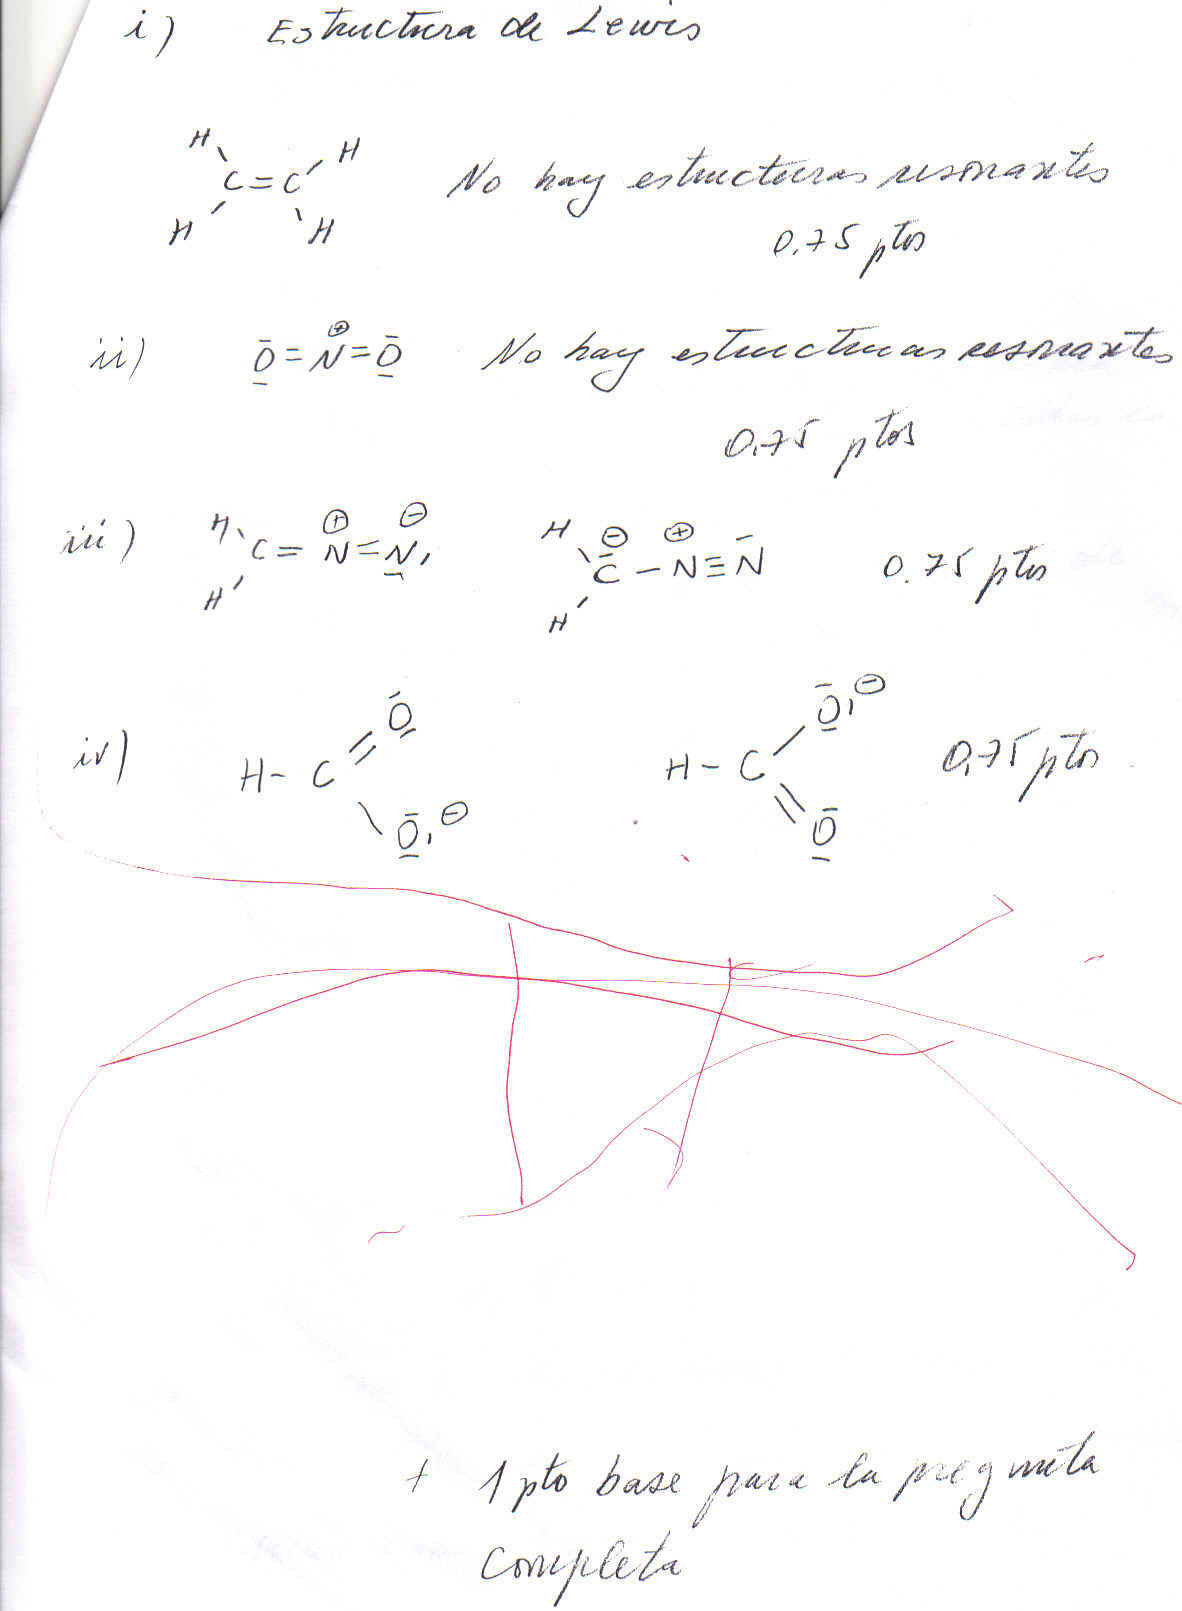 i) Estructura de Lewis
H H
C=C No hay estructuras resonantes
H H
0.75 ptos
⊕
ii) O=N=O No hay estructuras resonantes
0.75 ptos
H ⊕ ⊖ H ⊖ ⊕
iii) C=N=N, C-N≡N 0.75 ptos
H H
O O ⊖
iv) H-C H-C 0,75 ptos
O ⊖ O
+ 1 pto base para la pregunta
completa